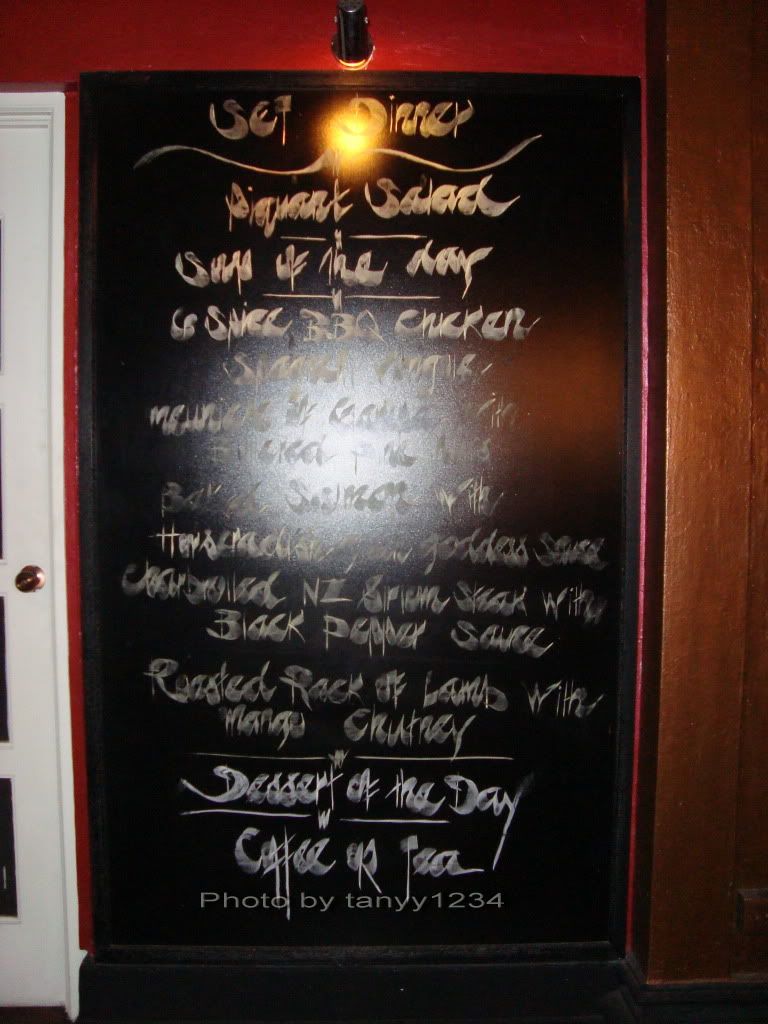 Set Dinner
Piquant Salad
Soup of the day
6 Spice BBQ Chicken
Spanish
meuniere of with
pine nuts
Baked Salmon with
Horseradish goddess sauce
Charbroiled NZ Sirloin Steak with
Black Pepper Sauce
Roasted Rack of Lamb with
mango Chutney
Dessert of the Day
Coffee or Tea
Photo by tanyy1234